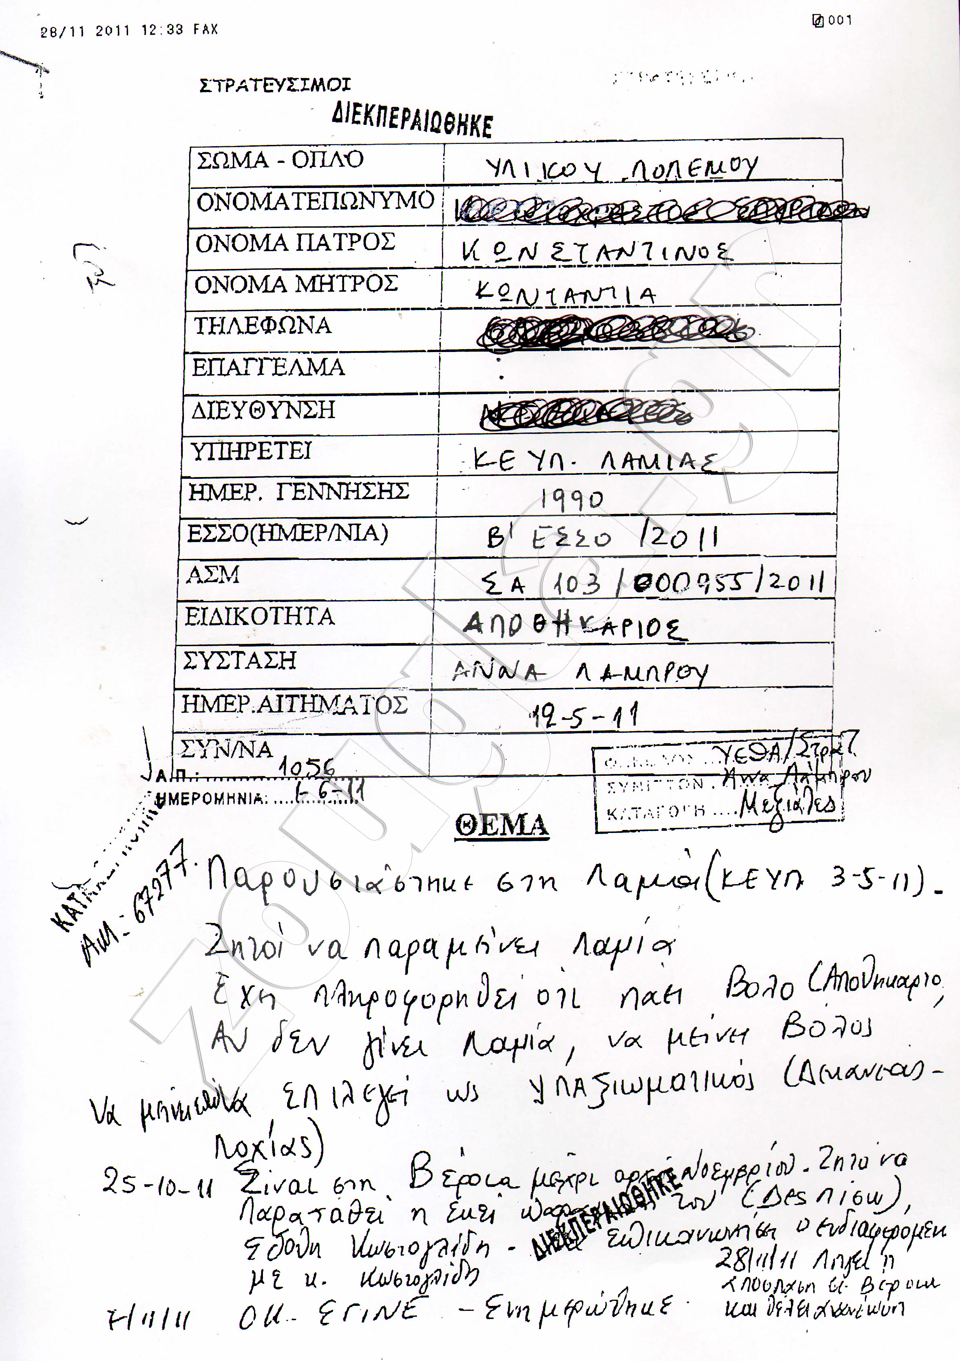 28/11 2011 12:33 FAX 001
ΣΤΡΑΤΕΥΣΙΜΟΙ
ΔΙΕΚΠΕΡΑΙΩΘΗΚΕ
ΣΩΜΑ - ΟΠΛΟ ΥΛΙΚΟΥ ΠΟΛΕΜΟΥ
ΟΝΟΜΑΤΕΠΩΝΥΜΟ
ΟΝΟΜΑ ΠΑΤΡΟΣ ΚΩΝΣΤΑΝΤΙΝΟΣ
ΟΝΟΜΑ ΜΗΤΡΟΣ ΚΩΝΤΑΝΤΙΑ
ΤΗΛΕΦΩΝΑ
ΕΠΑΓΓΕΛΜΑ :
ΔΙΕΥΘΥΝΣΗ
ΥΠΗΡΕΤΕΙ ΚΕΥΠ. ΛΑΜΙΑΣ
ΗΜΕΡ. ΓΕΝΝΗΣΗΣ 1990
ΕΣΣΟ(ΗΜΕΡ/ΝΙΑ) Β' ΕΣΣΟ /2011
ΑΣΜ ΣΑ 103/000955/2011
ΕΙΔΙΚΟΤΗΤΑ ΑΠΟΘΗΚΑΡΙΟΣ
ΣΥΣΤΑΣΗ ΑΝΝΑ ΛΑΜΠΡΟΥ
ΗΜΕΡ.ΑΙΤΗΜΑΤΟΣ 12-5-11
ΣΥΝ/ΝΑ
Α.Π.: 1056
ΗΜΕΡΟΜΗΝΙΑ: 1-6-11
ΥΕΘΑ/Στρατ
Άννα Λάμπρου
ΚΑΤΑΓΩΓΗ Μεξιάτες
ΘΕΜΑ
ΑΜ: 67277.
Παρουσιάστηκε στη Λαμία (ΚΕΥΠ 3-5-11).
Ζητοί να παραμείνει Λαμία
Εχη πληροφορηθεί ότι πάει Βόλο (Αποθηκάριο,
Αν δεν γίνει Λαμία, να μείνει Βόλος
Να επιλεγεί ως Υπαξιωματικός (Δεκανέας-
Λοχίας)
25-10-11 Είναι στη Βέροια μέχρι Νοεμβρίου. Ζητά να
Παραταθεί η εκεί του (Δεσπίσω),
ΔΙΕΚΠΕΡΑΙΩΘΗΚΕ
Εδόθη Κωστογλίδη - επικοινωνήση ο ενδιαφερόμεν
με κ. Κωστογλίδη
28/11/11 Λήγει η
απόσπαση σ. Βέροια
και θέλει ανανέωση
7/11/11 ΟΚ ΕΓΙΝΕ - Ενημερώθηκε.
zougla.gr